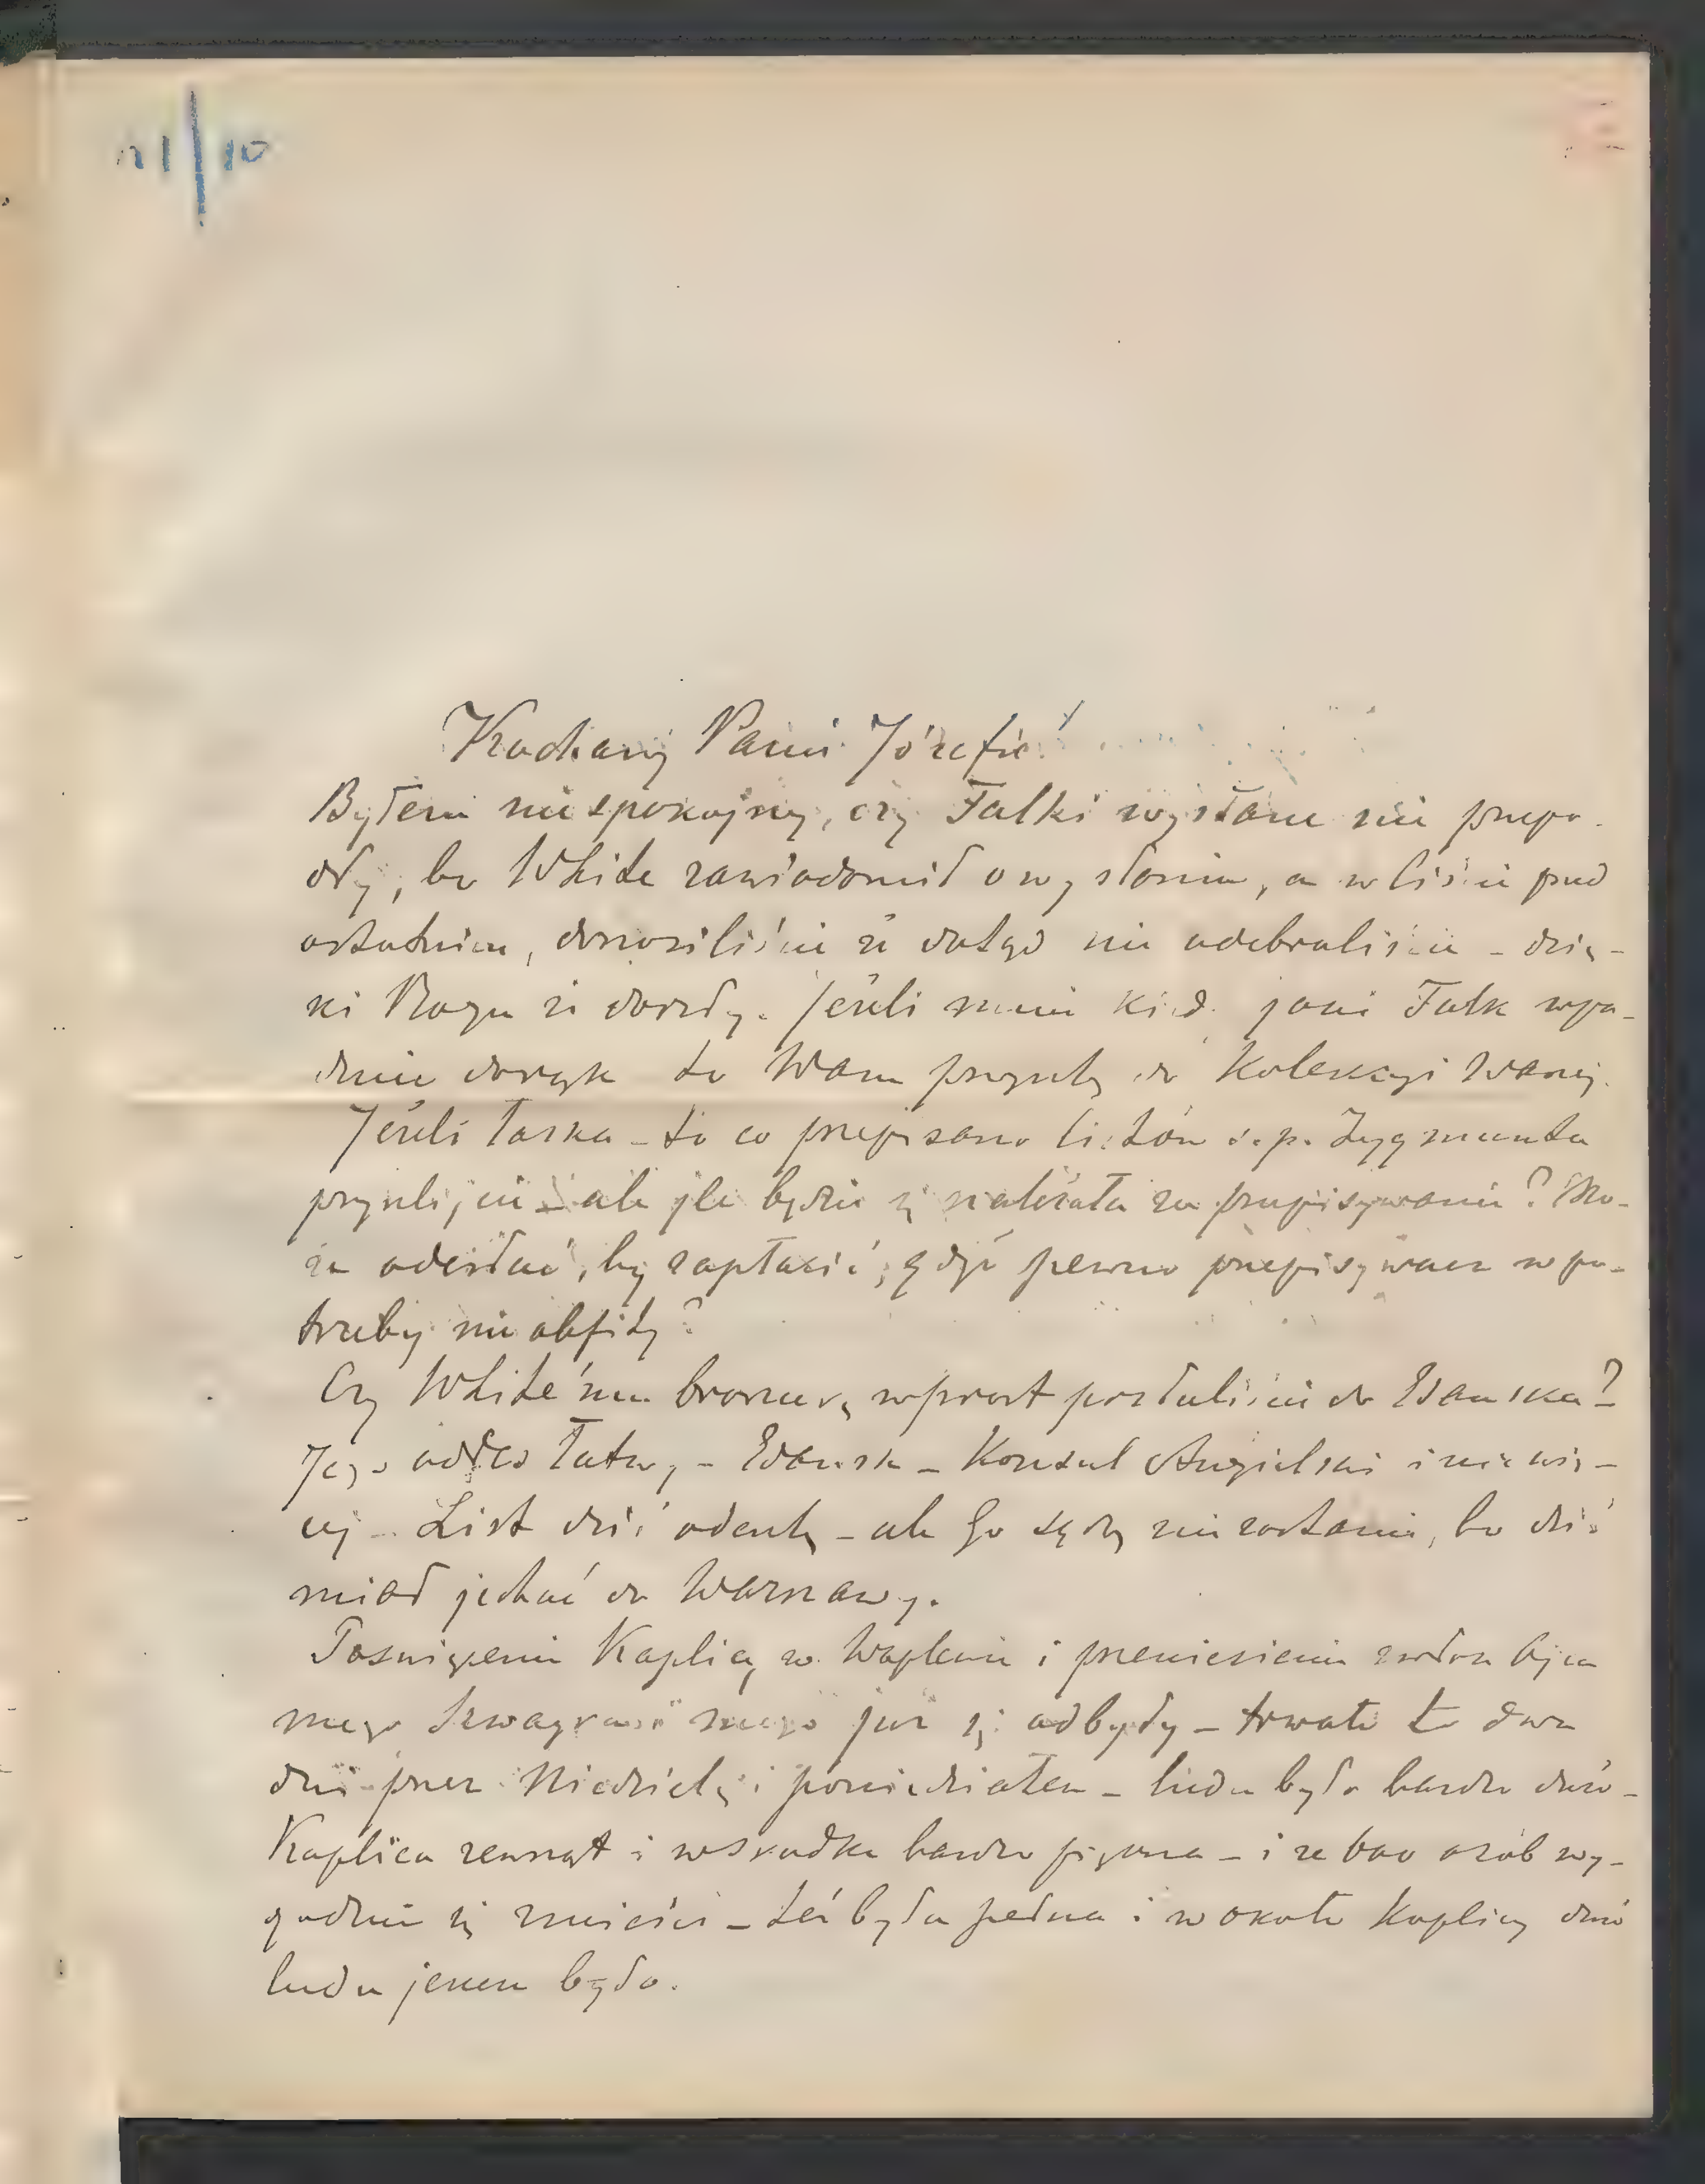 21/10
Kochany Panie Józefie!
Byłem niespokojny, czy Falki wysłane nie przepa-
dły, bo White zawiadomił o wysłaniu, a w liście przed
ostatnim, donosiliście że dotąd nie odebraliście – dzię-
ki Bogu że doszły. Jeśli mnie kied. jaki Falk wpa-
dnie do rąk to Wam przyszlę do Kolekcyi Waszej.
Jeśli łaska – to co przepisano listów ś. p. Zygmunta
przyszlijcie – ale jle będzie się należała za przepisywanie? Mo-
że odesłać, by zapłacić, gdyż pewno przepisywacz w po-
trzeby nie obfity?
Czy White'mu broszurę wprost posłaliście do Gdańska?
Jego adres łatwy – Gdańsk – Konsul Angielski i nie wię-
cej – List dziś odeszlę – ale Go sądzę nie zastanie, bo dziś
miał jechać do Warszawy.
Poświęcenie Kaplicy w Waplewie i przeniesienie zwłok Ojca
mego Szwagra i mego już się odbyły – trwało to dwa
dni przez Niedzielę i poniedziałek – ludu było bardzo dużo –
Kaplica zewnąt i wśrodku bardzo piękna – i osób wy-
godnie się zmieści – też była pełna i w około Kaplicy dużo
ludu jeszcze było.